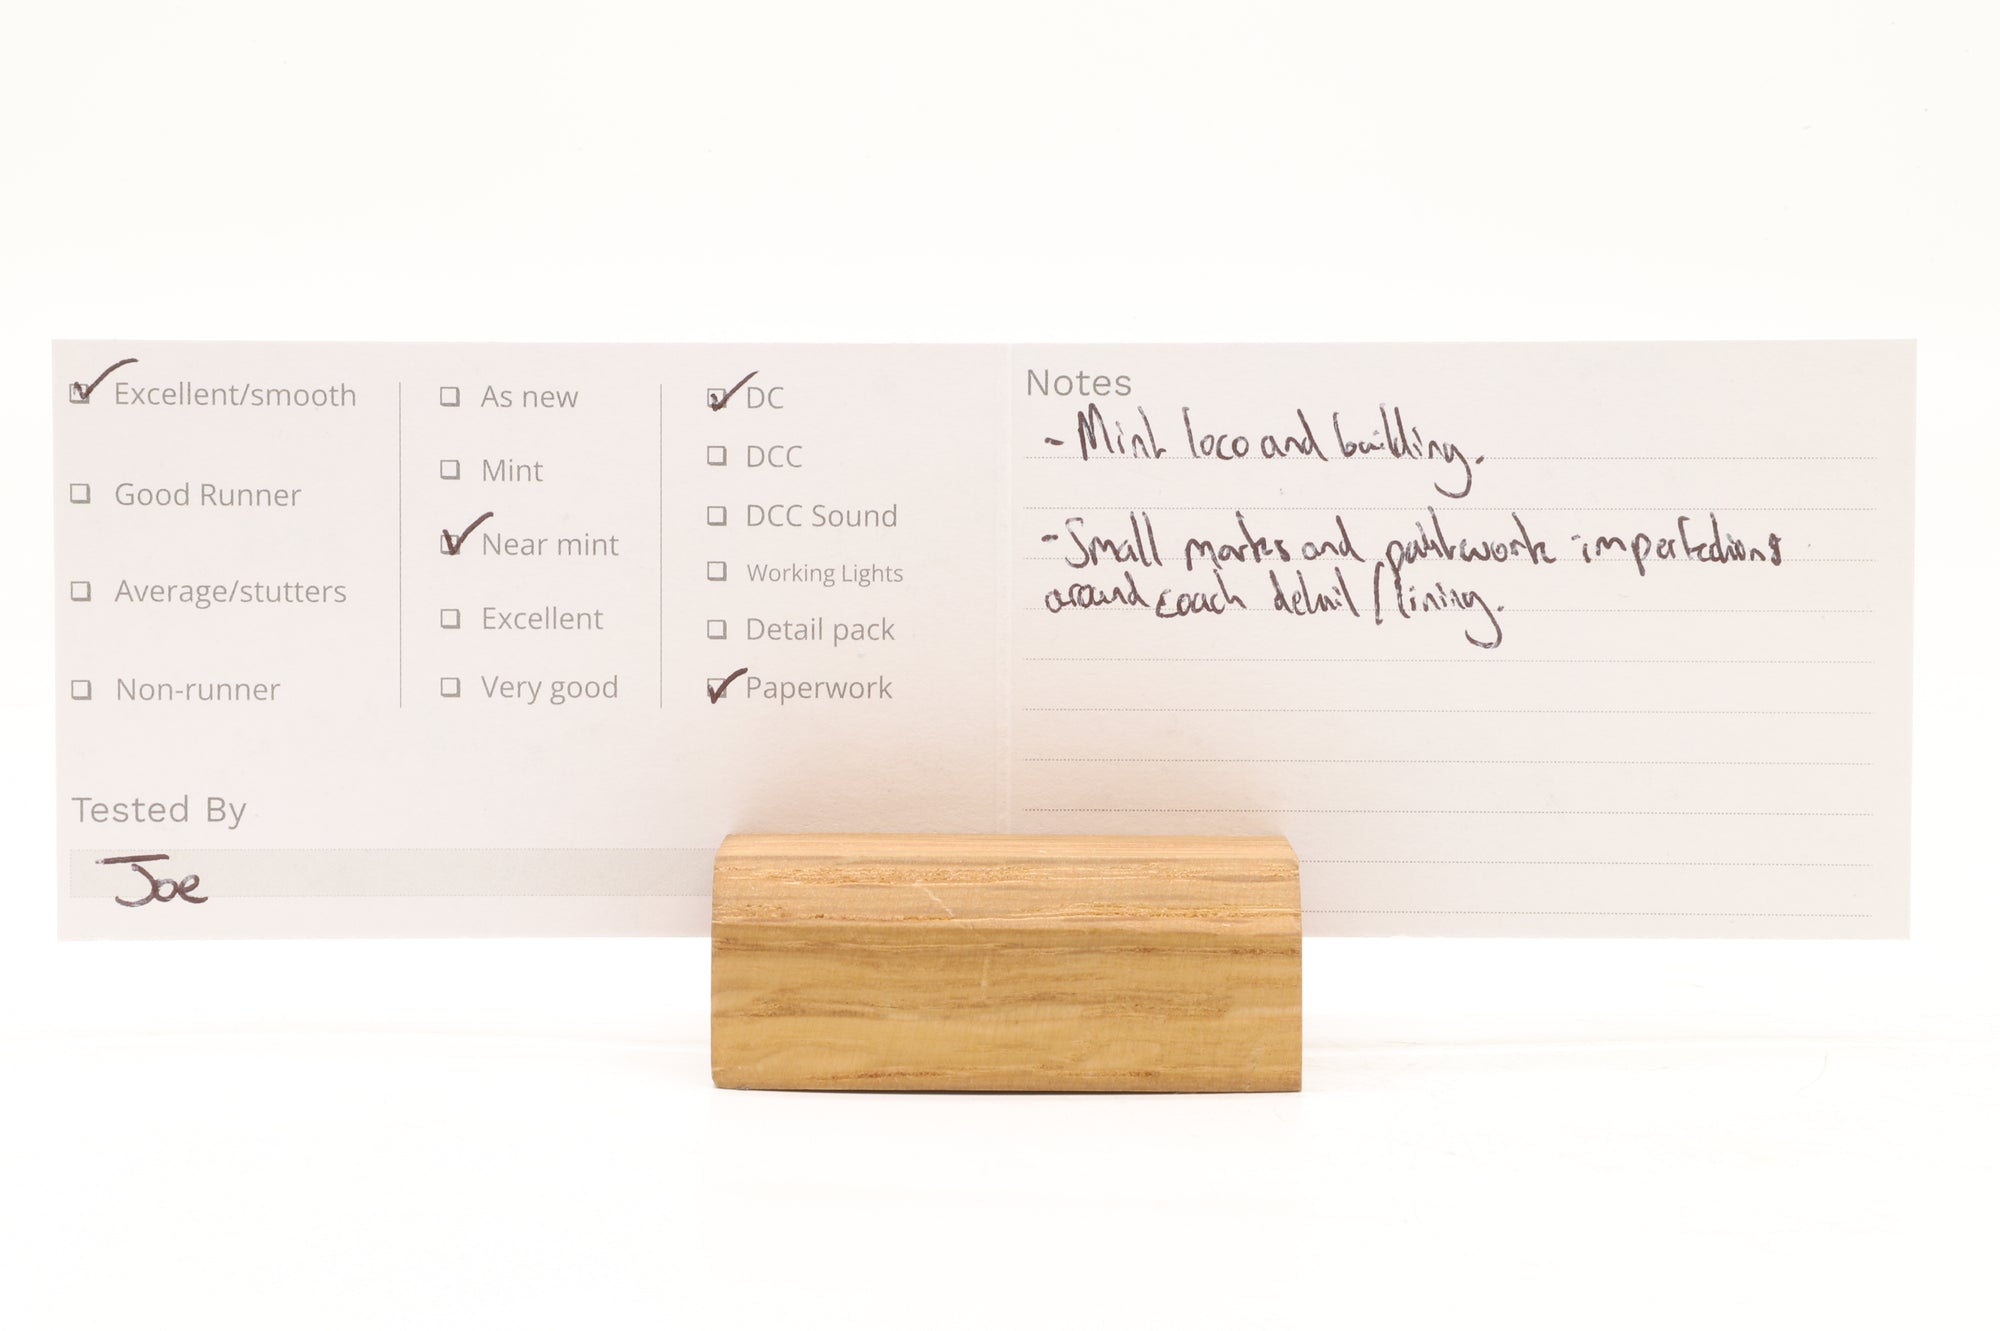 Excellent/smooth
Good Runner
Average/stutters
Non-runner
As new
Mint
Near mint
Excellent
Very good
DC
DCC
DCC Sound
Working Lights
Detail pack
Paperwork
Tested By
Joe
Notes
- Mint loco and building.
- Small marks and paintwork imperfections
around coach detail / lining.